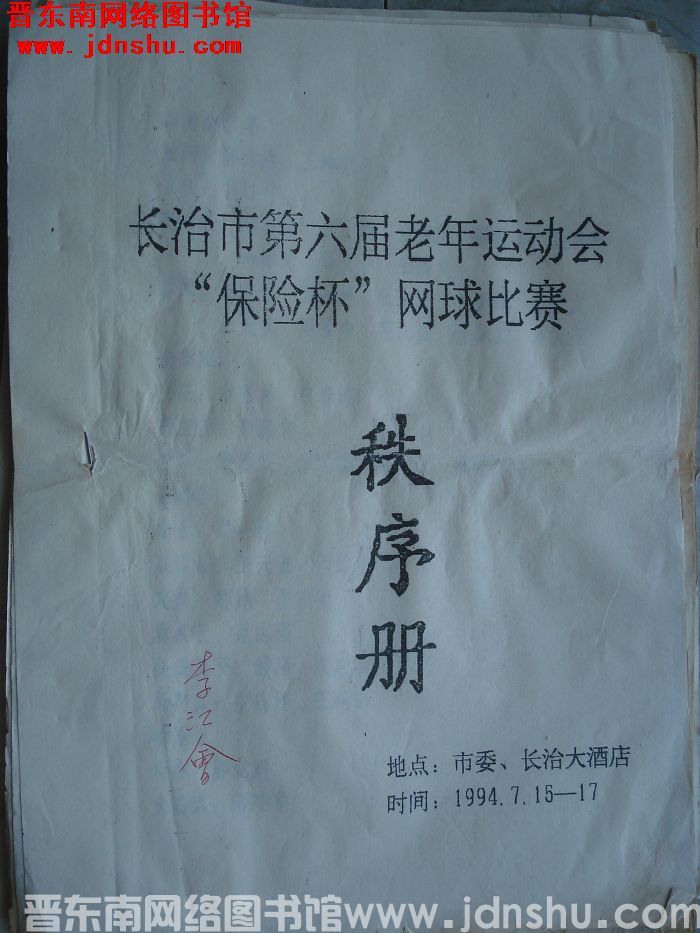 晋东南网络图书馆
www.jdnshu.com
长治市第六届老年运动会
“保险杯”网球比赛
秩序册
李江會
地点：市委、长治大酒店
时间：1994.7.15—17
晋东南网络图书馆www.jdnshu.com